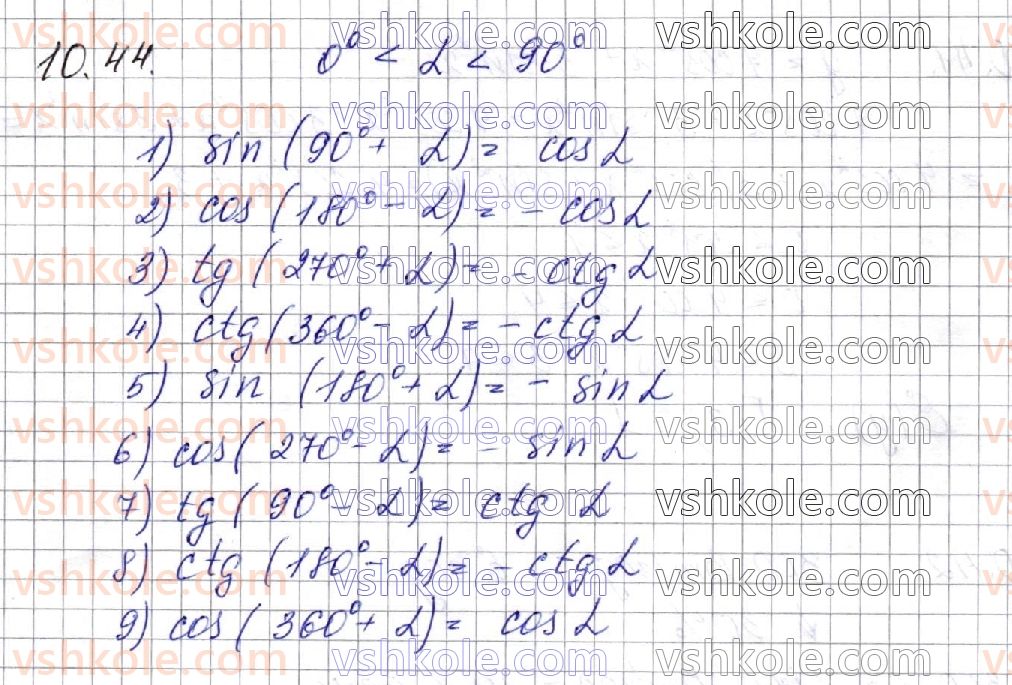 10.44. 0° < α < 90°
1) sin (90° + α) = cos α
2) cos (180° - α) = - cos α
3) tg (270° + α) = - ctg α
4) ctg (360° - α) = - ctg α
5) sin (180° + α) = - sin α
6) cos (270° - α) = - sin α
7) tg (90° - α) = ctg α
8) ctg (180° - α) = - ctg α
9) cos (360° + α) = cos α
vshkole.com